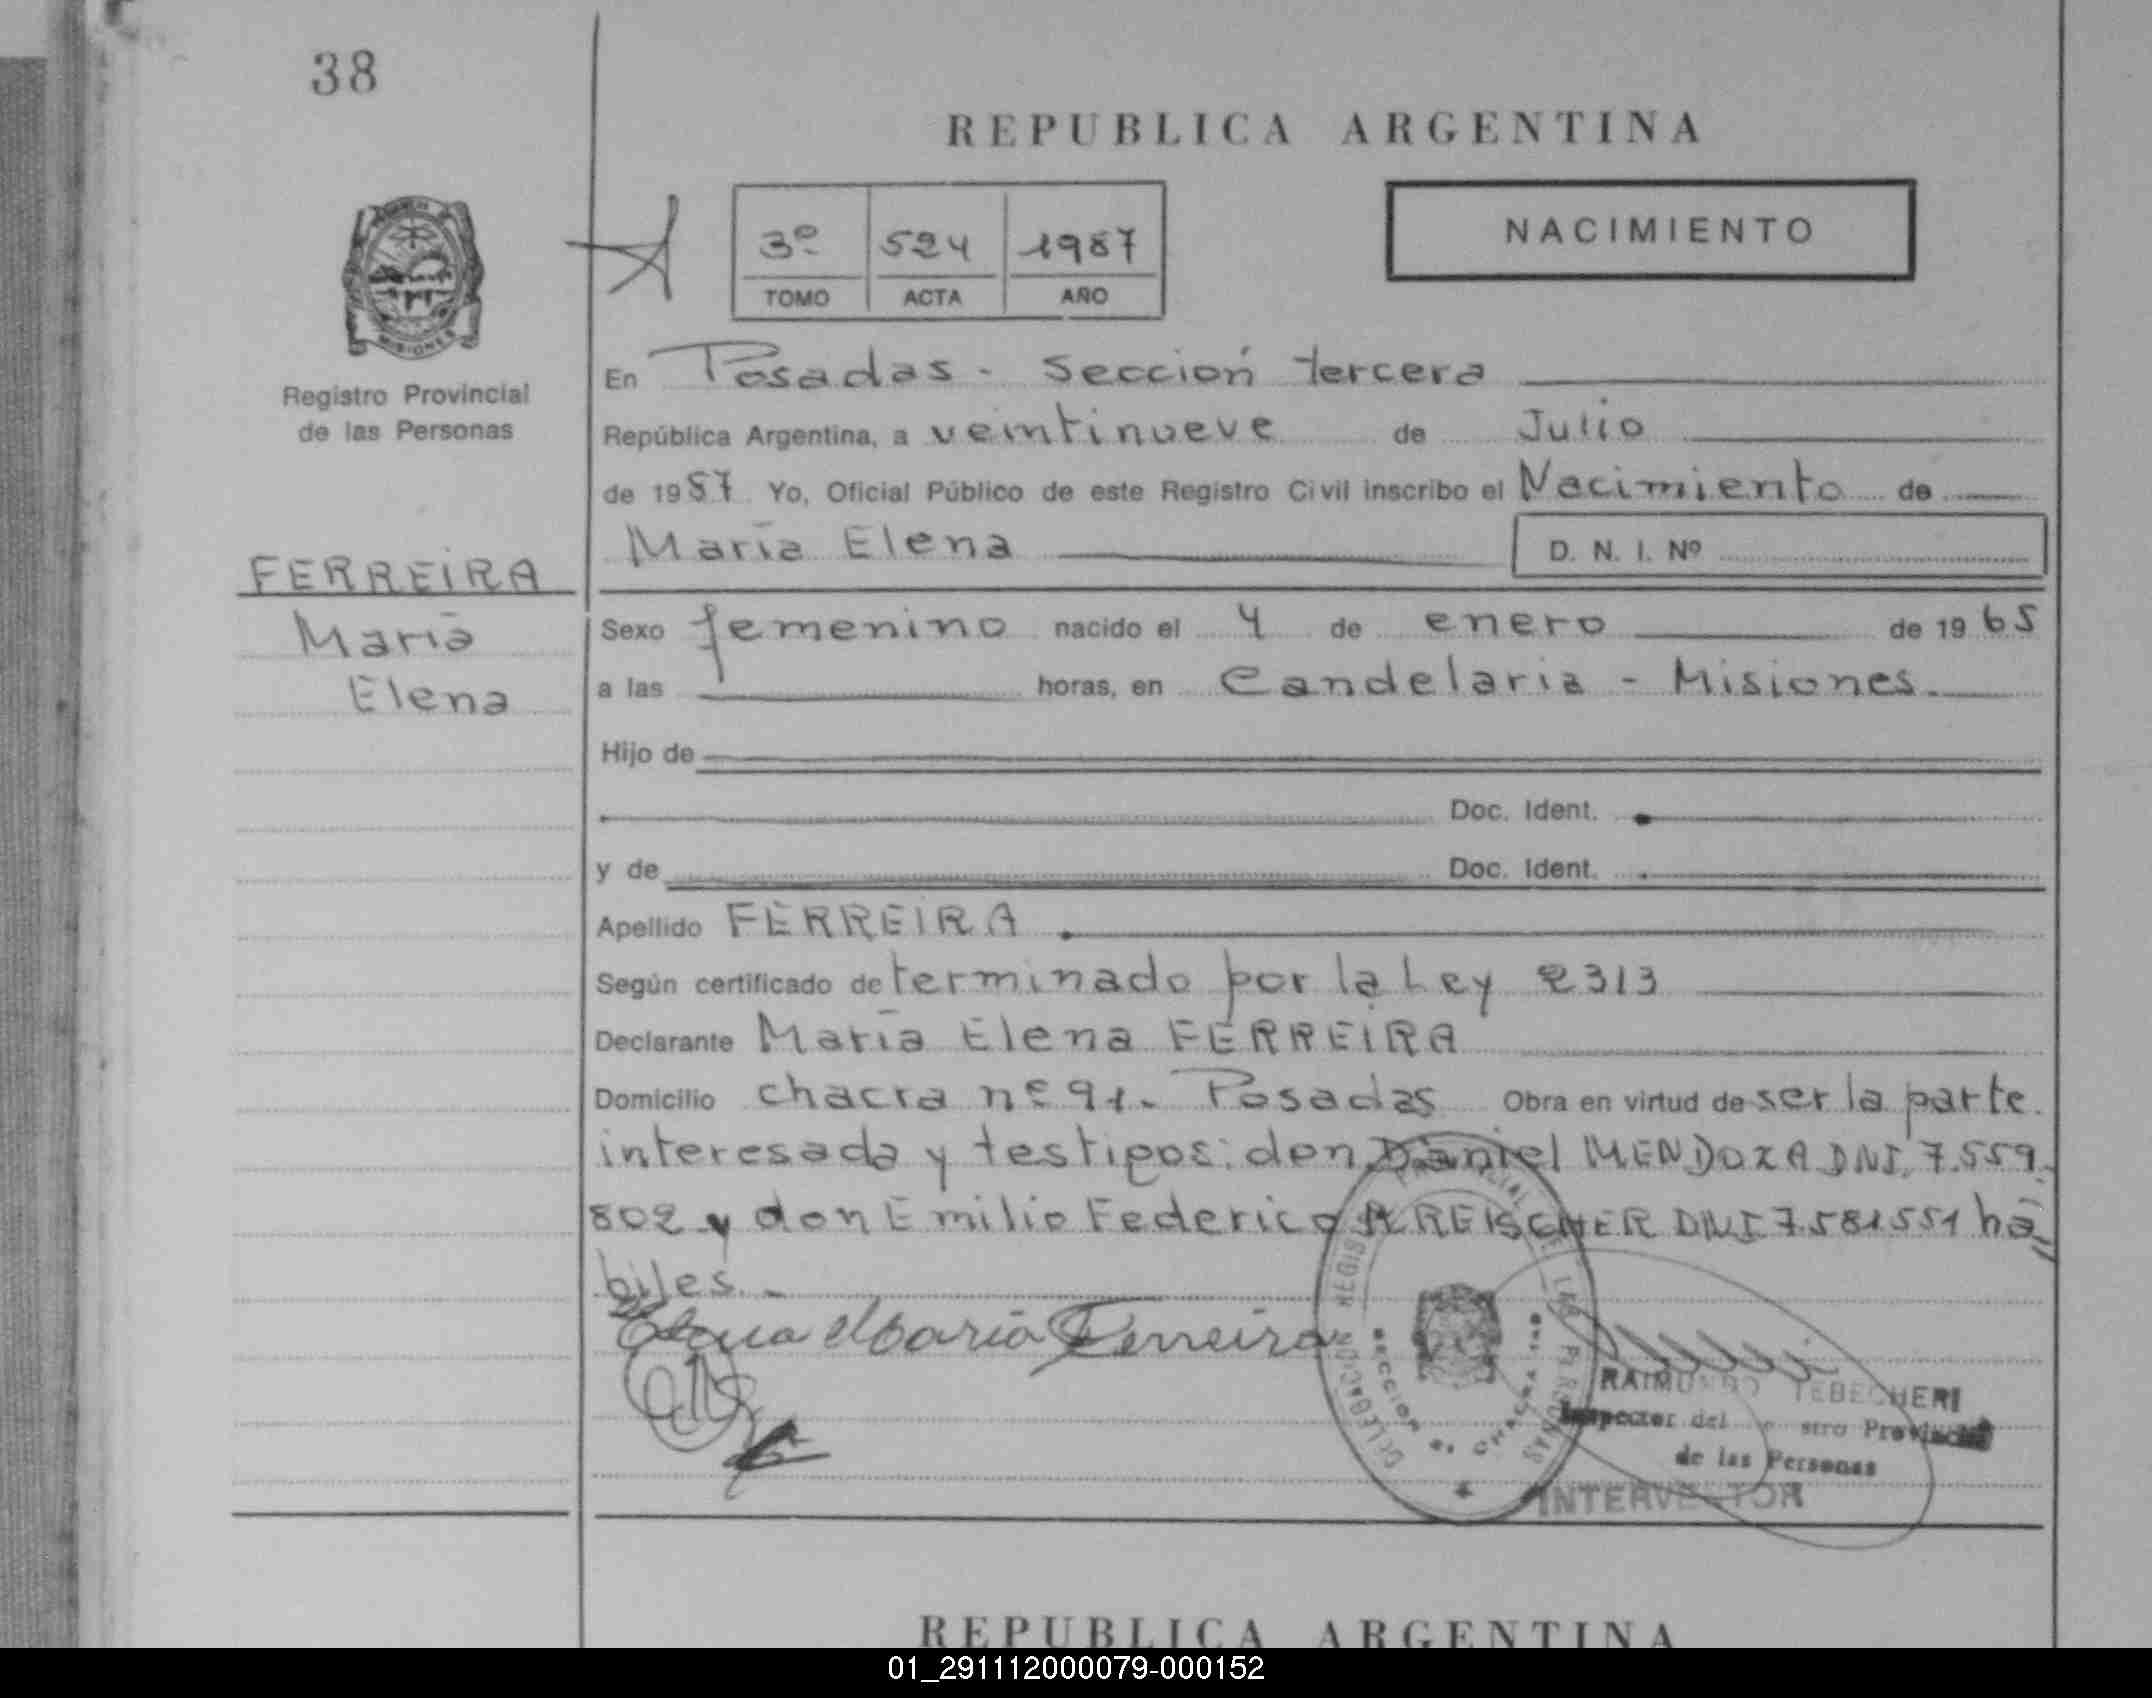 38
REPUBLICA ARGENTINA
3º 524 1987
TOMO ACTA AÑO
NACIMIENTO
MISIONES
Registro Provincial
de las Personas
En Posadas - Sección tercera
República Argentina, a veintinueve de Julio
de 1987 Yo, Oficial Público de este Registro Civil inscribo el Nacimiento de
María Elena D. N. I. Nº
FERREIRA
María
Elena
Sexo femenino nacido el 4 de enero de 1965
a las horas, en Candelaria - Misiones.
Hijo de
Doc. Ident.
y de Doc. Ident.
Apellido FERREIRA
Según certificado determinado por la Ley 2313
Declarante María Elena FERREIRA
Domicilio chacra nº 91. Posadas Obra en virtud de ser la parte
interesada y testigos: don Daniel MENDOZA DNI. 7.559.
802 y don Emilio Federico DNI 7.581551 há
biles.-
Elena Maria Ferreira
DELEGACION REGISTRO PROVINCIAL DE LAS PERSONAS
SECCION CHACRA
RAIMUNDO TEBECHERI
Inspector del stro Provincial
de las Personas
INTERVENTOR
REPUBLICA ARGENTINA
01_291112000079-000152